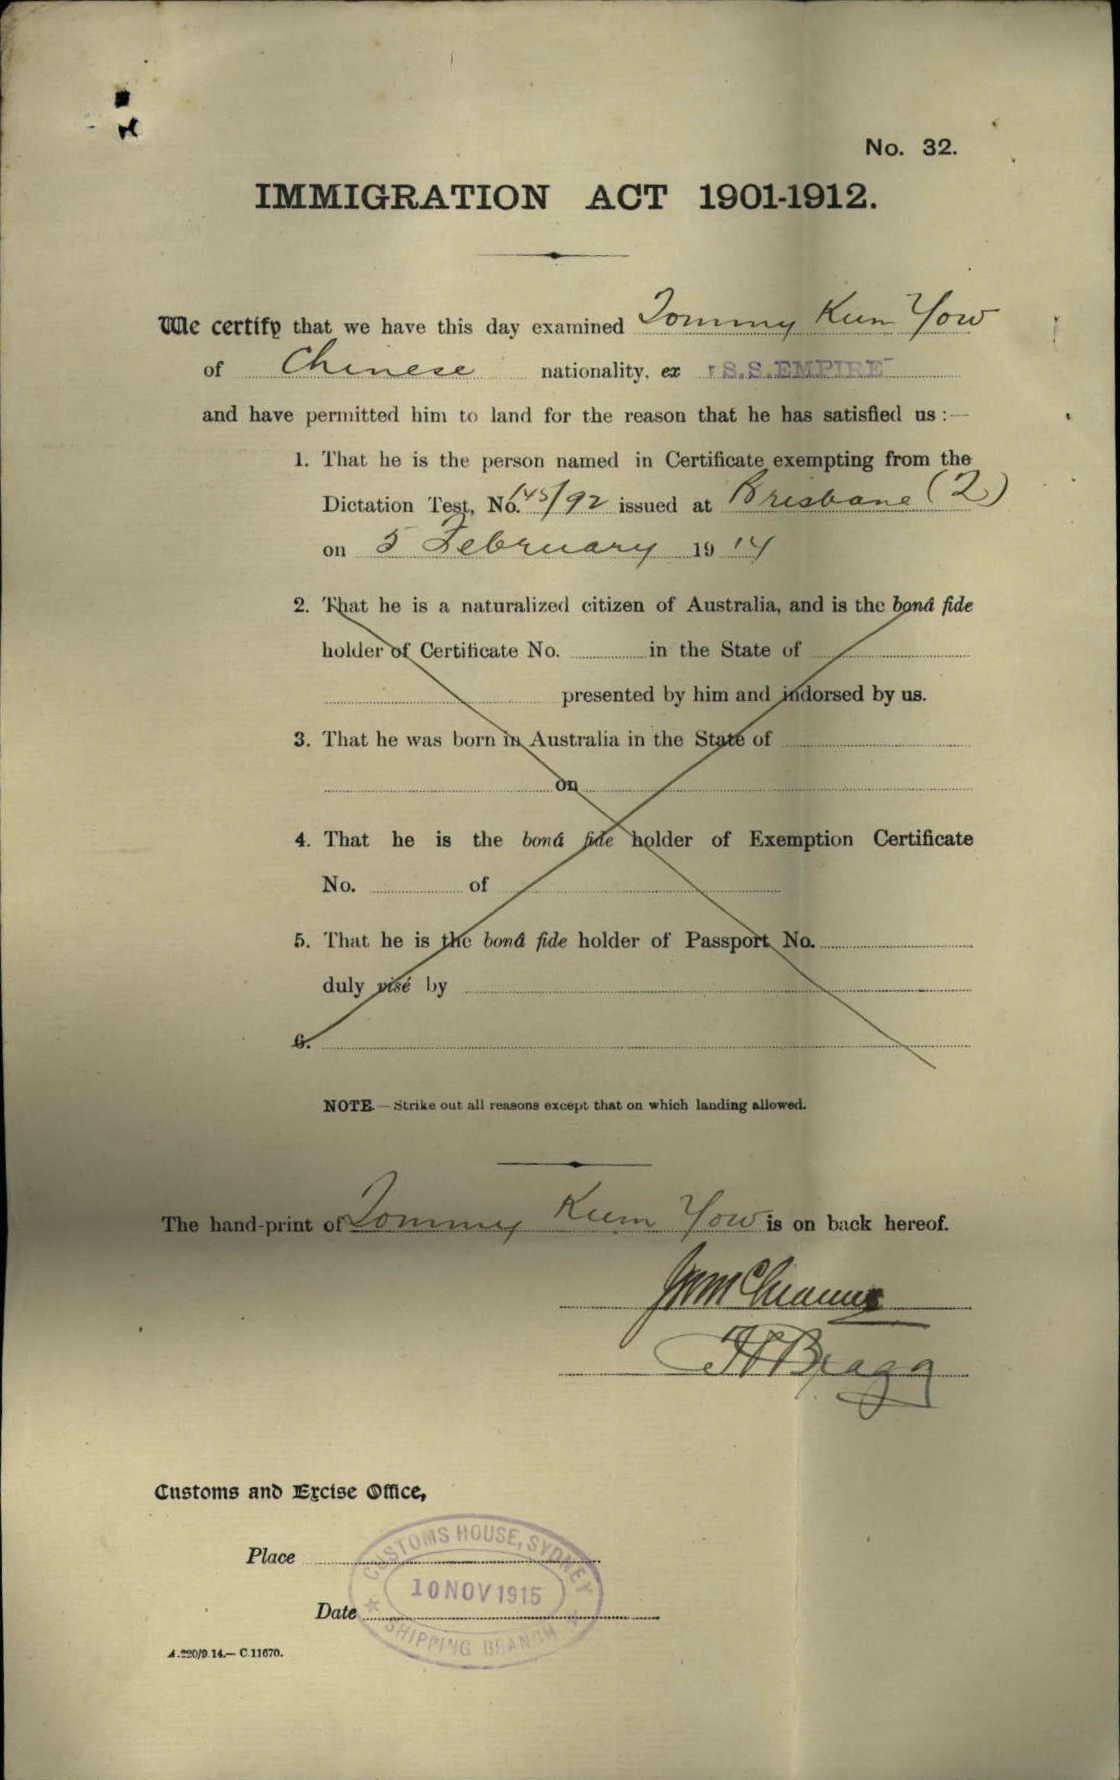 No. 32.
IMMIGRATION ACT 1901-1912.
We certify that we have this day examined Tommy Kum Yow
of Chinese nationality, ex S.S. EMPIRE
and have permitted him to land for the reason that he has satisfied us :—
1. That he is the person named in Certificate exempting from the
Dictation Test, No. 145/92 issued at Brisbane (2)
on 5 February 1914
2. That he is a naturalized citizen of Australia, and is the bonâ fide
holder of Certificate No. in the State of
presented by him and indorsed by us.
3. That he was born in Australia in the State of
on
4. That he is the bonâ fide holder of Exemption Certificate
No. of
5. That he is the bonâ fide holder of Passport No.
duly visé by
6.
NOTE.—Strike out all reasons except that on which landing allowed.
The hand-print of Tommy Kum Yow is on back hereof.
Bragg
Customs and Excise Office,
Place
CUSTOMS HOUSE, SYDNEY
10 NOV 1915
Date
SHIPPING BRANCH
A.220/9.14.—C.11670.